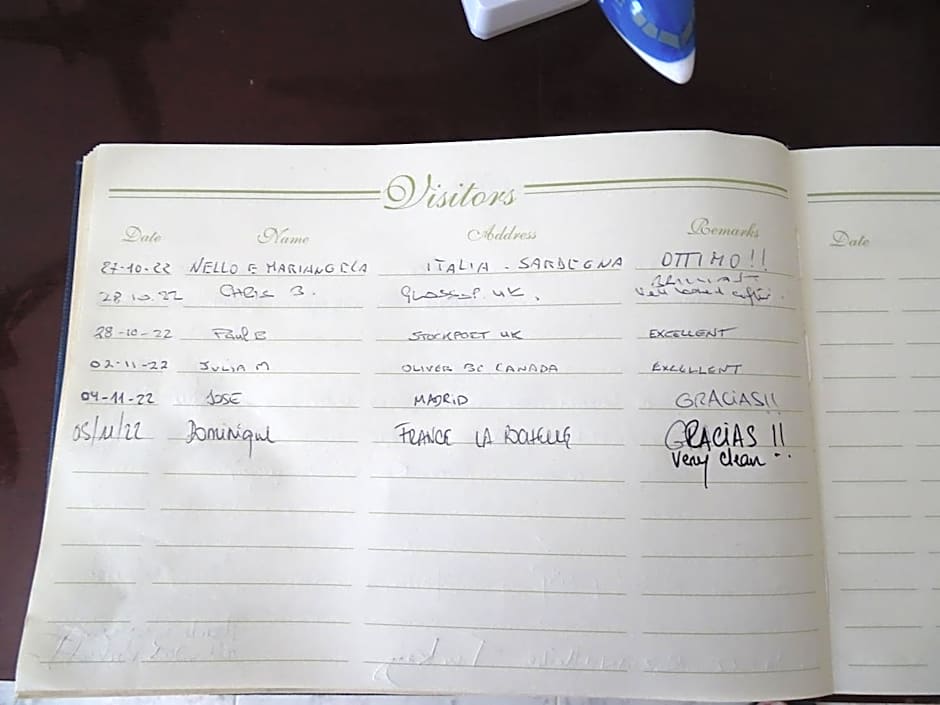 Visitors
Date Name Address Remarks Date
27-10-22 NELLO E MARIANGELA ITALIA - SARDEGNA OTTIMO!!
28.10.22 CHRIS B. GLOSSOP. UK. BRILLIANT
Well looked after.
28-10-22 Paul B STOCKPORT UK EXCELLENT
02-11-22 JULIA M OLIVER BC CANADA EXCELLENT
04-11-22 JOSE MADRID GRACIAS!!
05/11/22 Dominique FRANCE LA ROCHELLE GRACIAS !!
Very clean !!